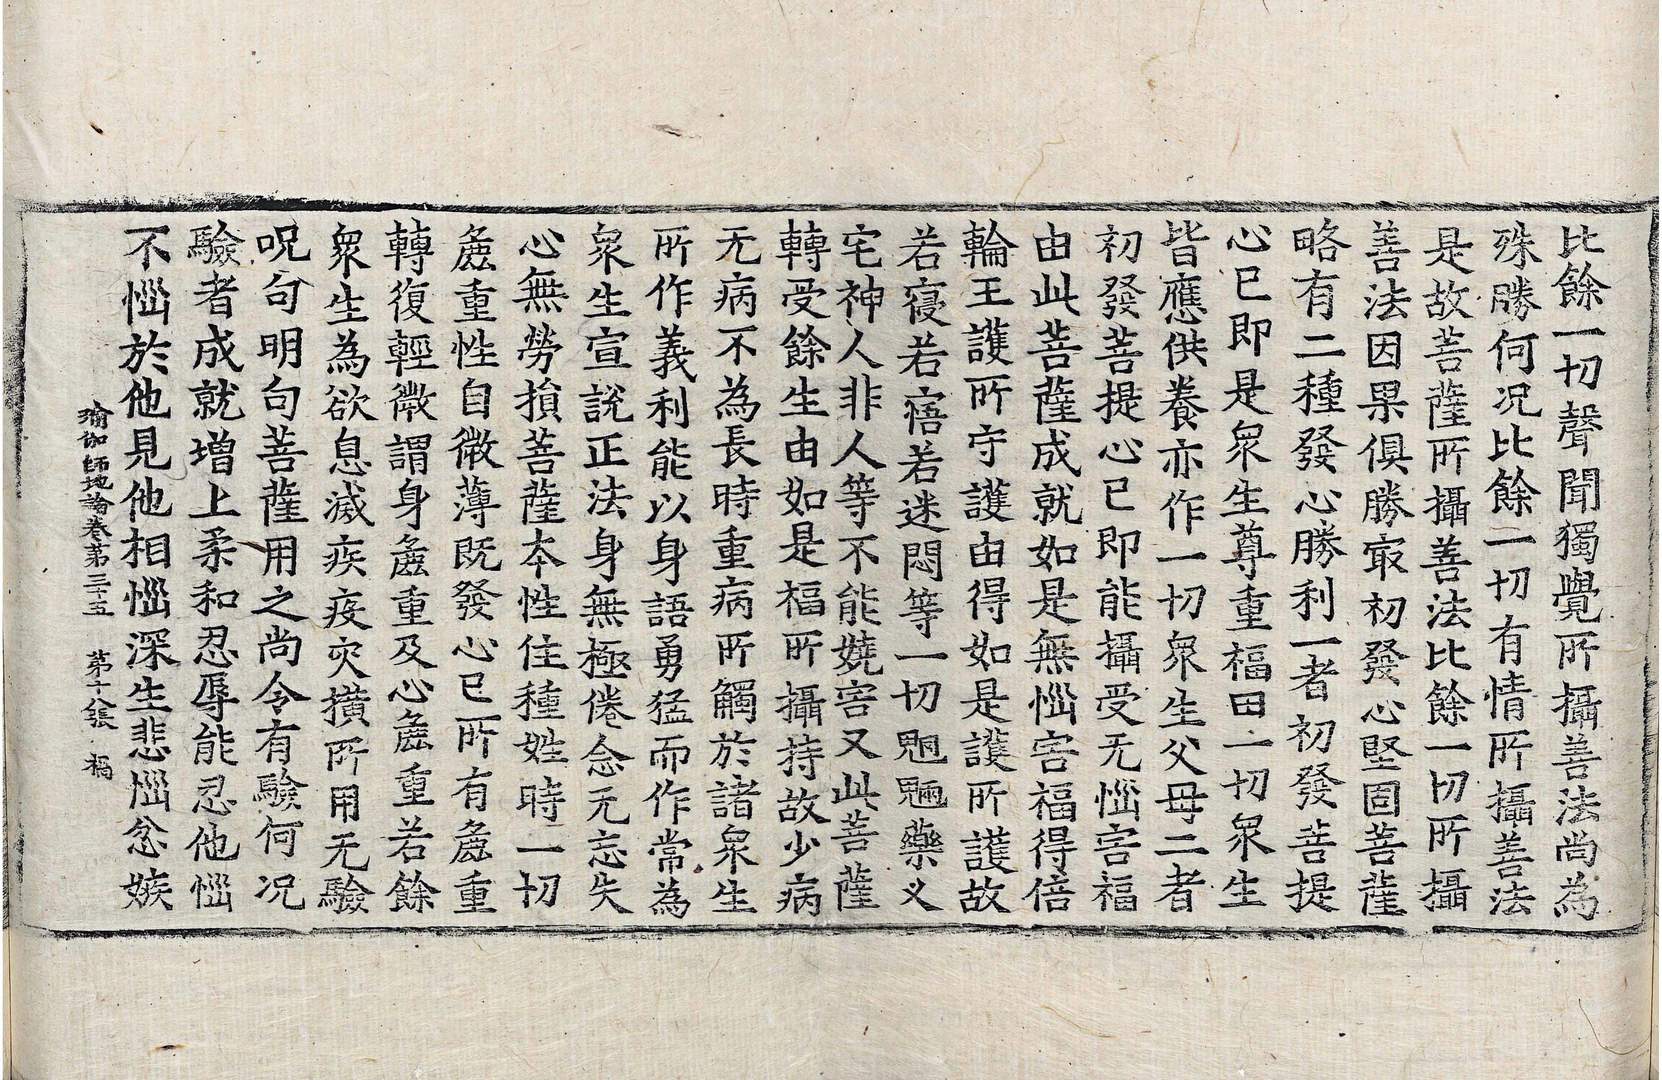 比餘一切聲聞獨覺所攝善法尚為
殊勝何况比餘一切有情所攝善法
是故菩薩所攝善法比餘一切所攝
善法因果俱勝㝡初發心堅固菩薩
略有二種發心勝利一者初發菩提
心已即是衆生尊重福田一切衆生
皆應供養亦作一切衆生父母二者
初發菩提心已即能攝受无惱害福
由此菩薩成就如是無惱害福得倍
輪王護所守護由得如是護所護故
若寑若寤若迷悶等一切魍魎藥叉
宅神人非人等不能嬈害又此菩薩
轉受餘生由如是福所攝持故少病
无病不為長時重病所觸於諸衆生
所作義利能以身語勇猛而作常為
衆生宣說正法身無極倦念无忘失
心無勞損菩薩本性住種姓時一切
麁重性自微薄旣發心已所有麁重
轉復輕微謂身麁重及心麁重若餘
衆生為欲息滅疾疫灾撗所用无驗
呪句明句菩薩用之尚令有驗何况
驗者成就增上柔和忍辱能忍他惱
不惱於他見他相惱深生悲惱忿嫉
瑜伽師地論卷第三十五 第十八張 禍